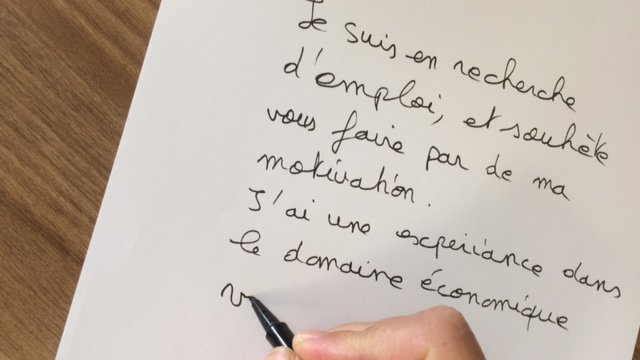 Je suis en recherche
d'emploi, et souhète
vous faire par de ma
motivation.
J'ai une experiance dans
le domaine économique
v